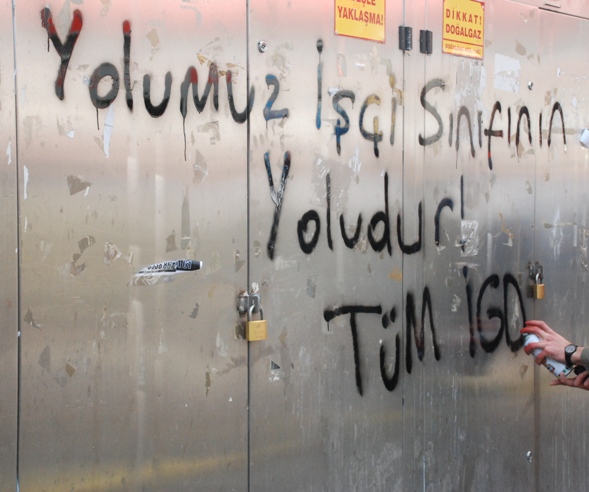 YAKLAŞMA!
DİKKAT!
DOĞALGAZ
Yolumuz İşçi Sınıfının
Yoludur!
TÜM İGD